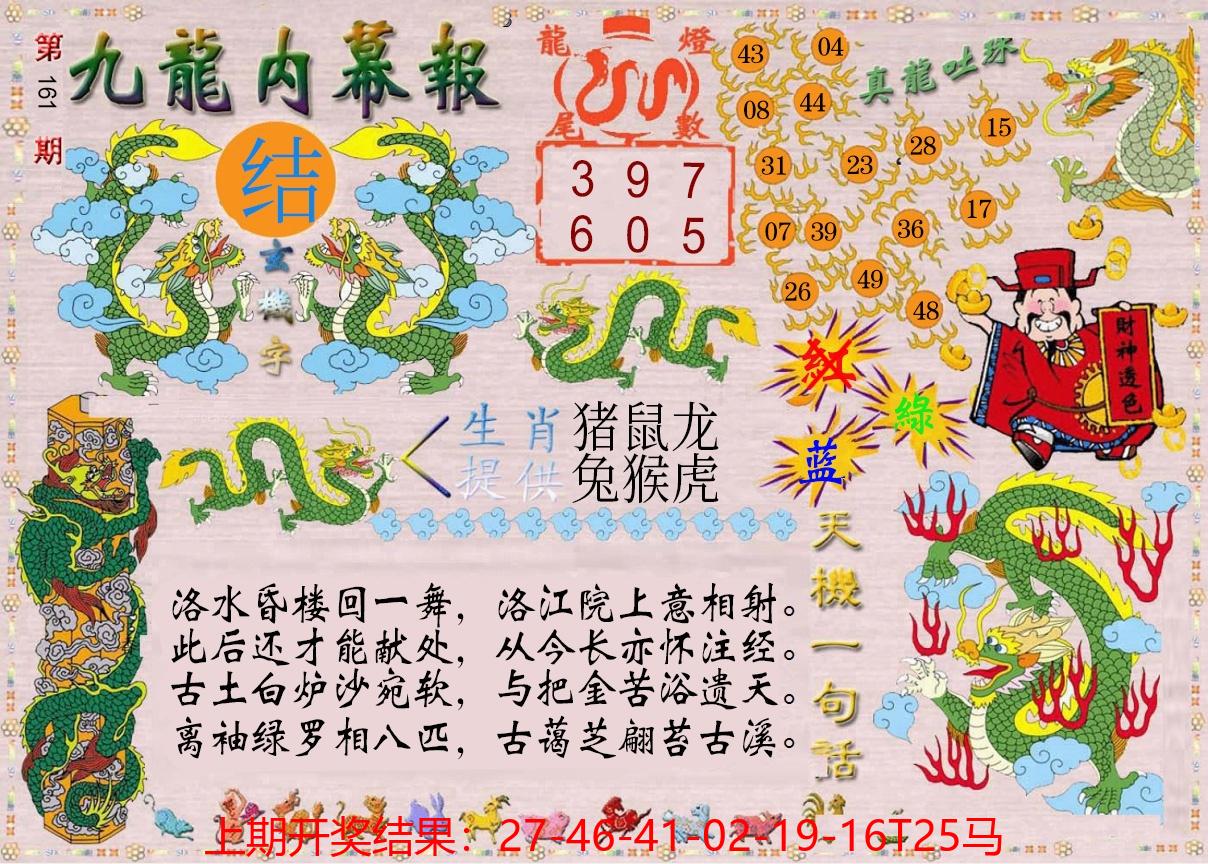 第161期
九龍内幕報
结
玄機字
龍燈尾數
3 9 7
6 0 5
真龍吐珠
43 04
08 44
31 23 28 15
07 39 36 17
26 49 48
財神透色
紅
綠
蓝
生肖提供
猪鼠龙
兔猴虎
天機一句話
洛水昏楼回一舞，洛江院上意相射。
此后还才能献处，从今长亦怀注经。
古土白炉沙宛软，与把金苦浴遗天。
离袖绿罗相八匹，古蔼芝翩苔古溪。
上期开奖结果：27-46-41-02-19-16T25马